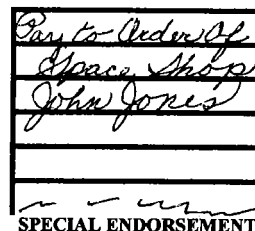 Pay to Order Of
Space Shop
John Jones
SPECIAL ENDORSEMENT